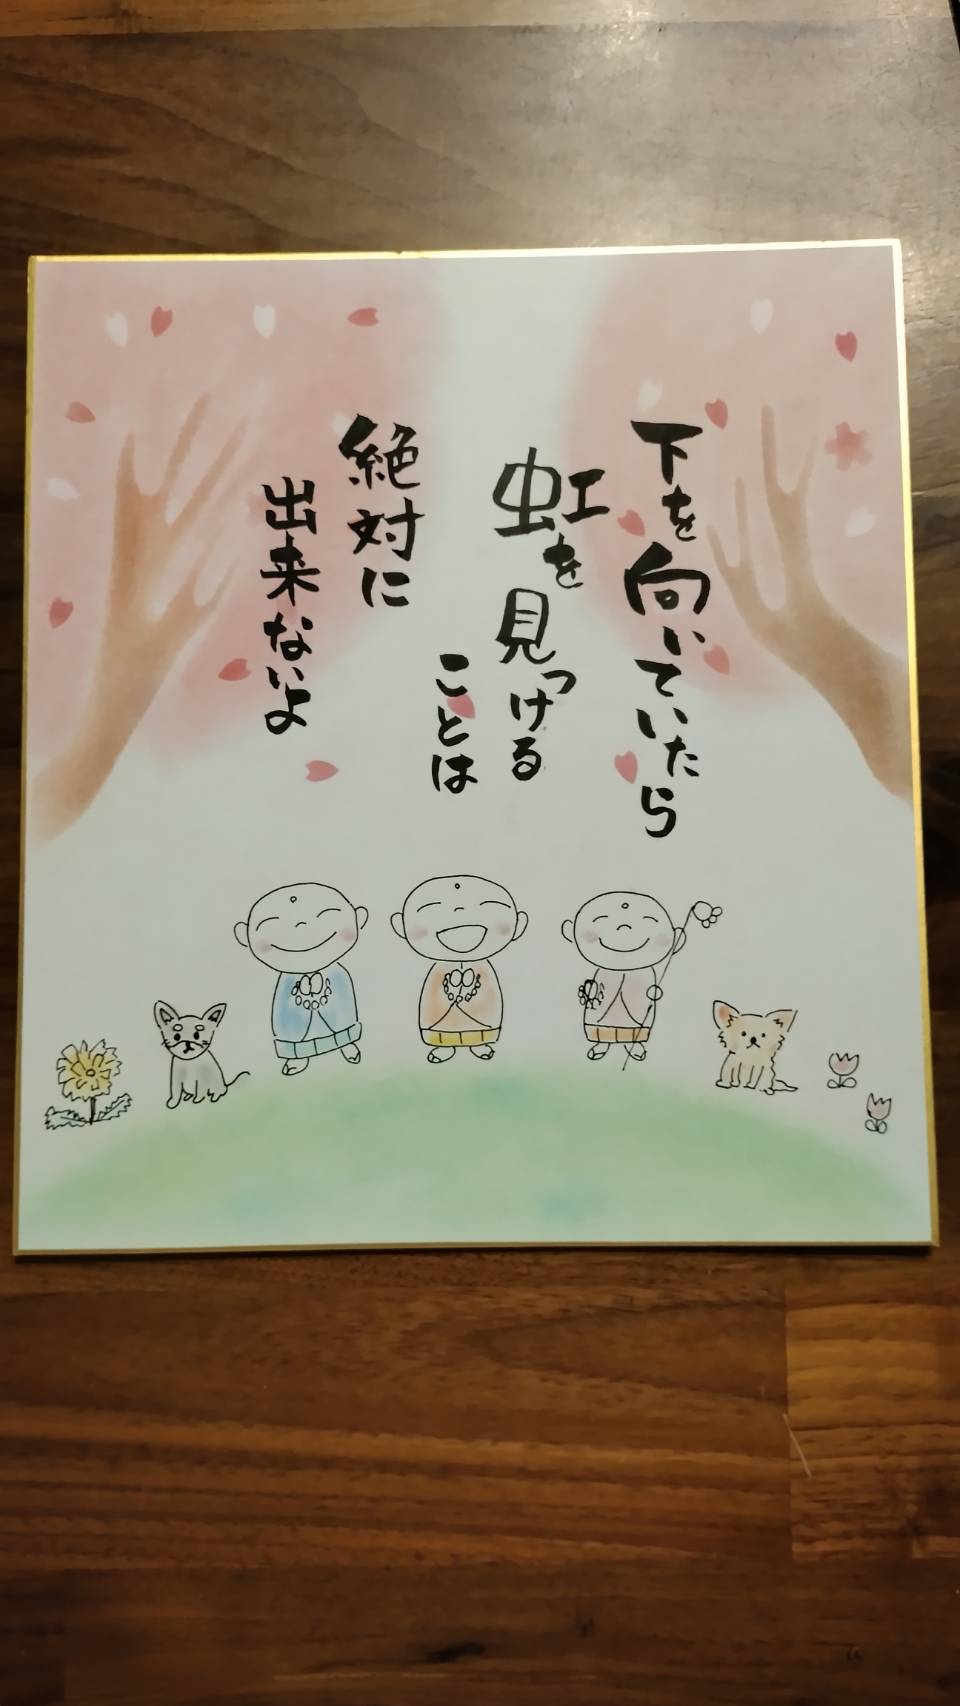 下を向いていたら
虹を見つける
ことは
絶対に
出来ないよ